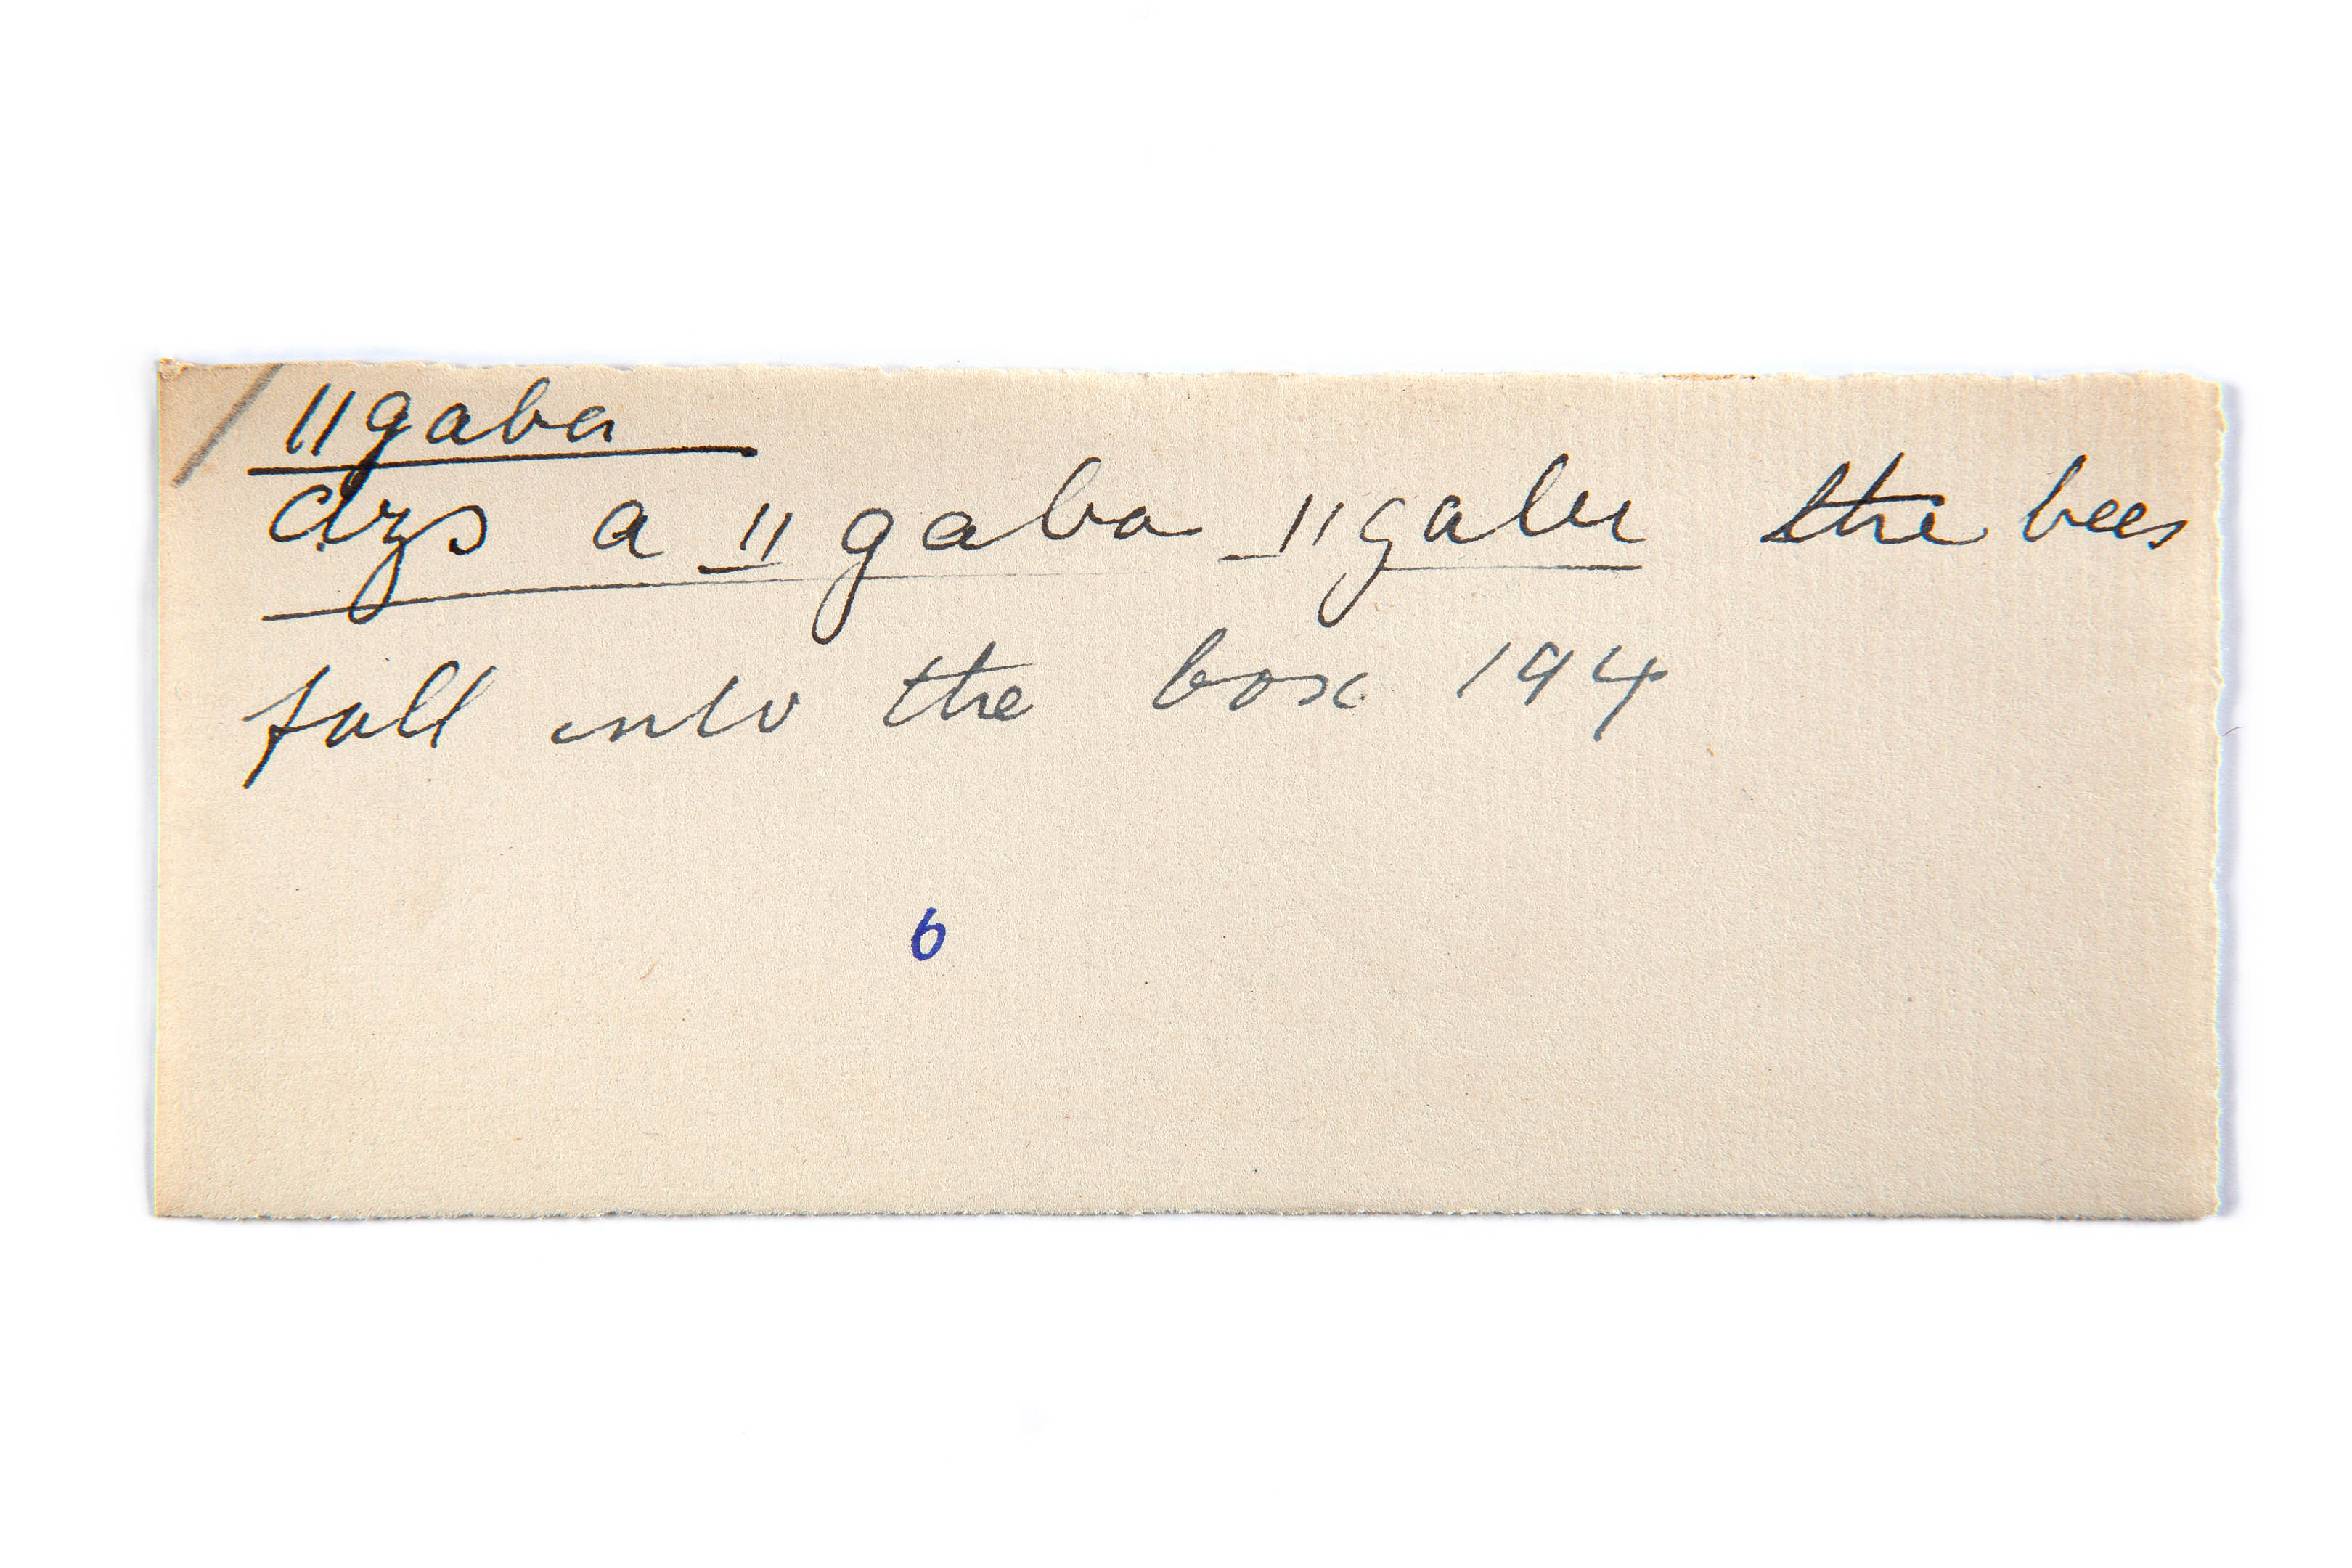 ǁgaba
dzs a ǁgaba ǁgabu the bees
fall into the box 194
6